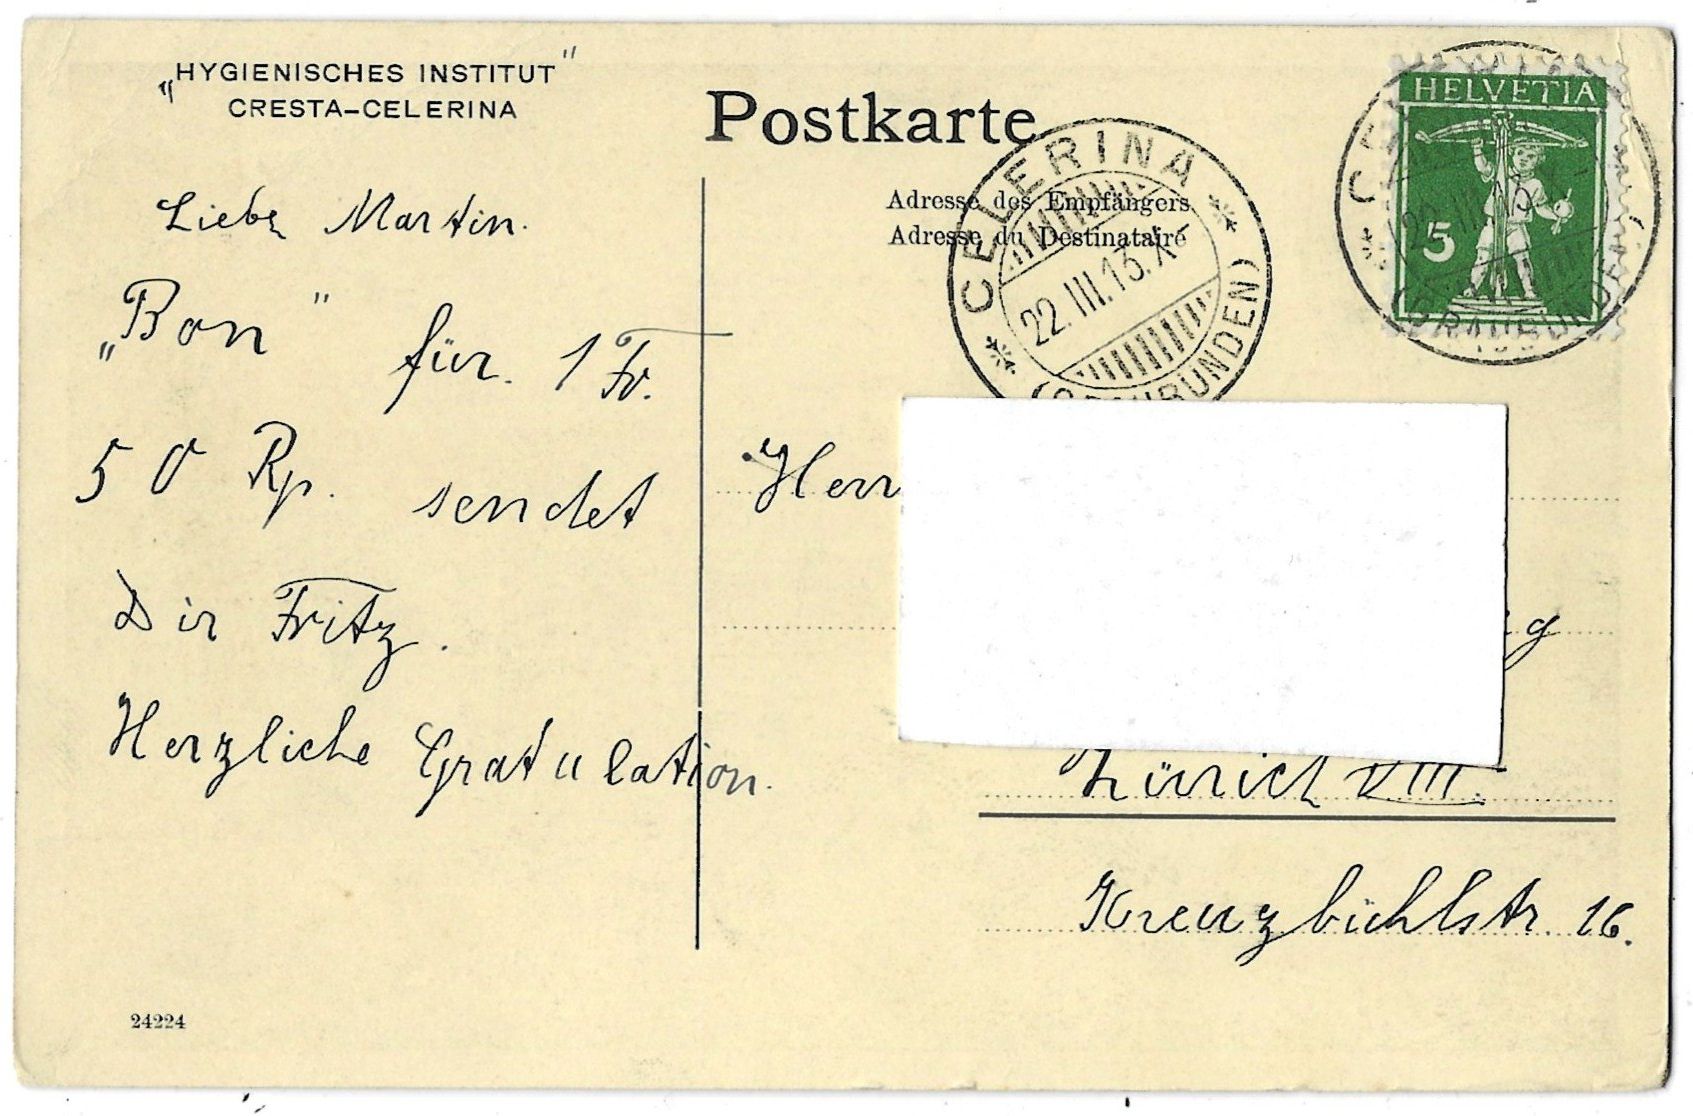 „HYGIENISCHES INSTITUT"
CRESTA-CELERINA
Postkarte
Adresse des Empfängers
Adresse du Destinataire
CELERINA
22.III.13.X
(GRAUBÜNDEN)
HELVETIA
5
Liebe Martin.
„Bon" für 1 Fr.
50 Rp. sendet
Dir Fritz.
Herzliche Gratulation.
Herr
Zürich VIII.
Kreuzbühlstr. 16.
24224